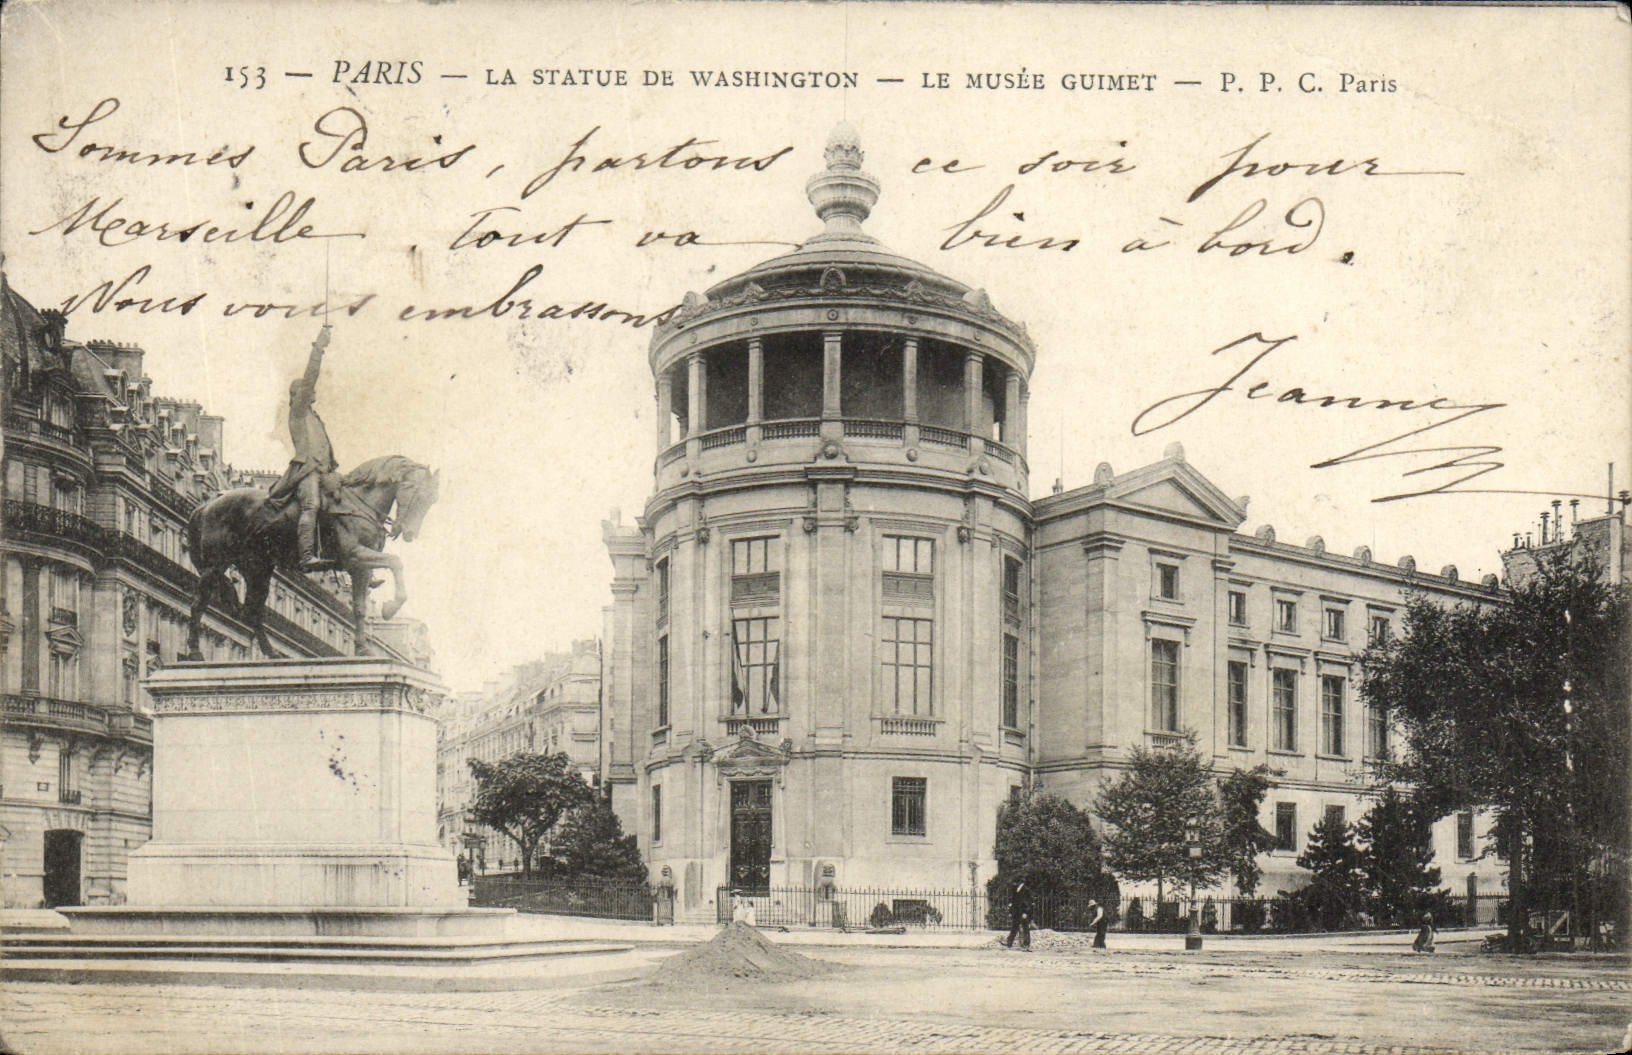 153 — PARIS — LA STATUE DE WASHINGTON — LE MUSÉE GUIMET — P. P. C. Paris
Sommes Paris, partons ce soir pour
Marseille. Tout va bien à bord.
Nous vous embrassons
Jeanne